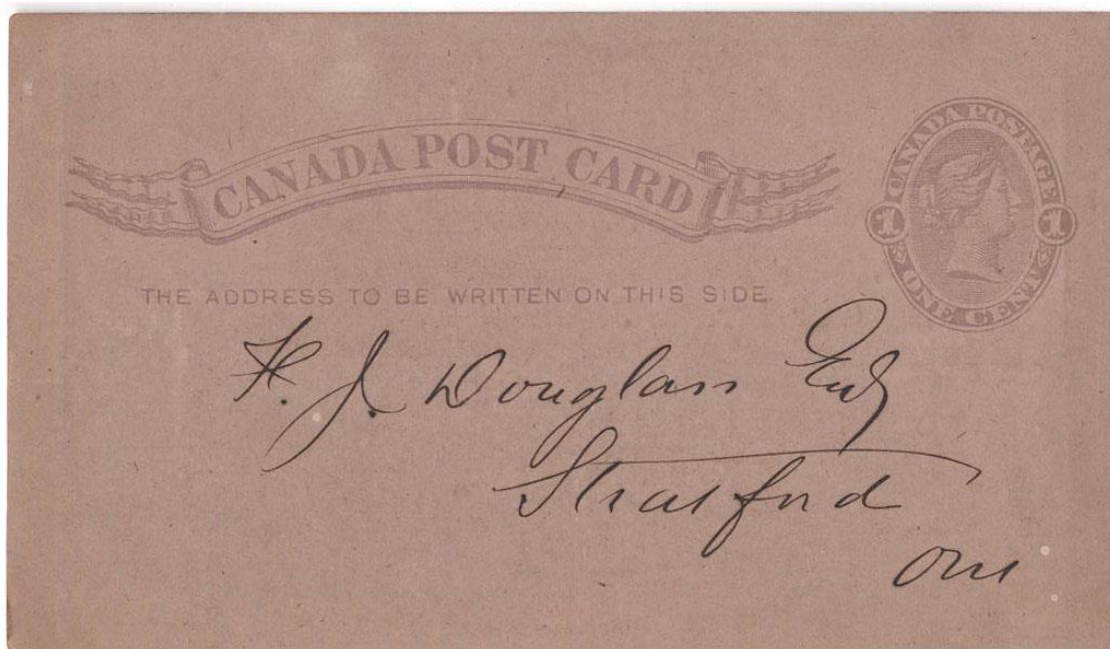 CANADA POST CARD
CANADA POSTAGE
1 1
ONE CENT
THE ADDRESS TO BE WRITTEN ON THIS SIDE.
J. Douglass Esq
Stratford
Ont